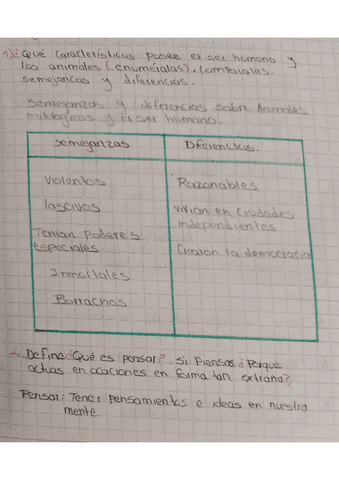 1) ¿Qué Características posee el ser humano y
los animales (enuméralas), comparalas.
semejanzas y diferencias.
Semejanzas y diferencias sobre Animales
mitologicos y el ser humano.
Semejanzas
Diferencias.
Violentos
Razonables
lascivos
vivian en Ciudades
independientes
Tenian Poderes
Especiales
Crearon la democracia
Inmortales
Borrachos
Define ¿Qué es pensar? Si Piensas ¿Porque
actuas en ocaciones en forma tan extraña?
Pensar: Tener Pensamientos e ideas en nuestra
mente